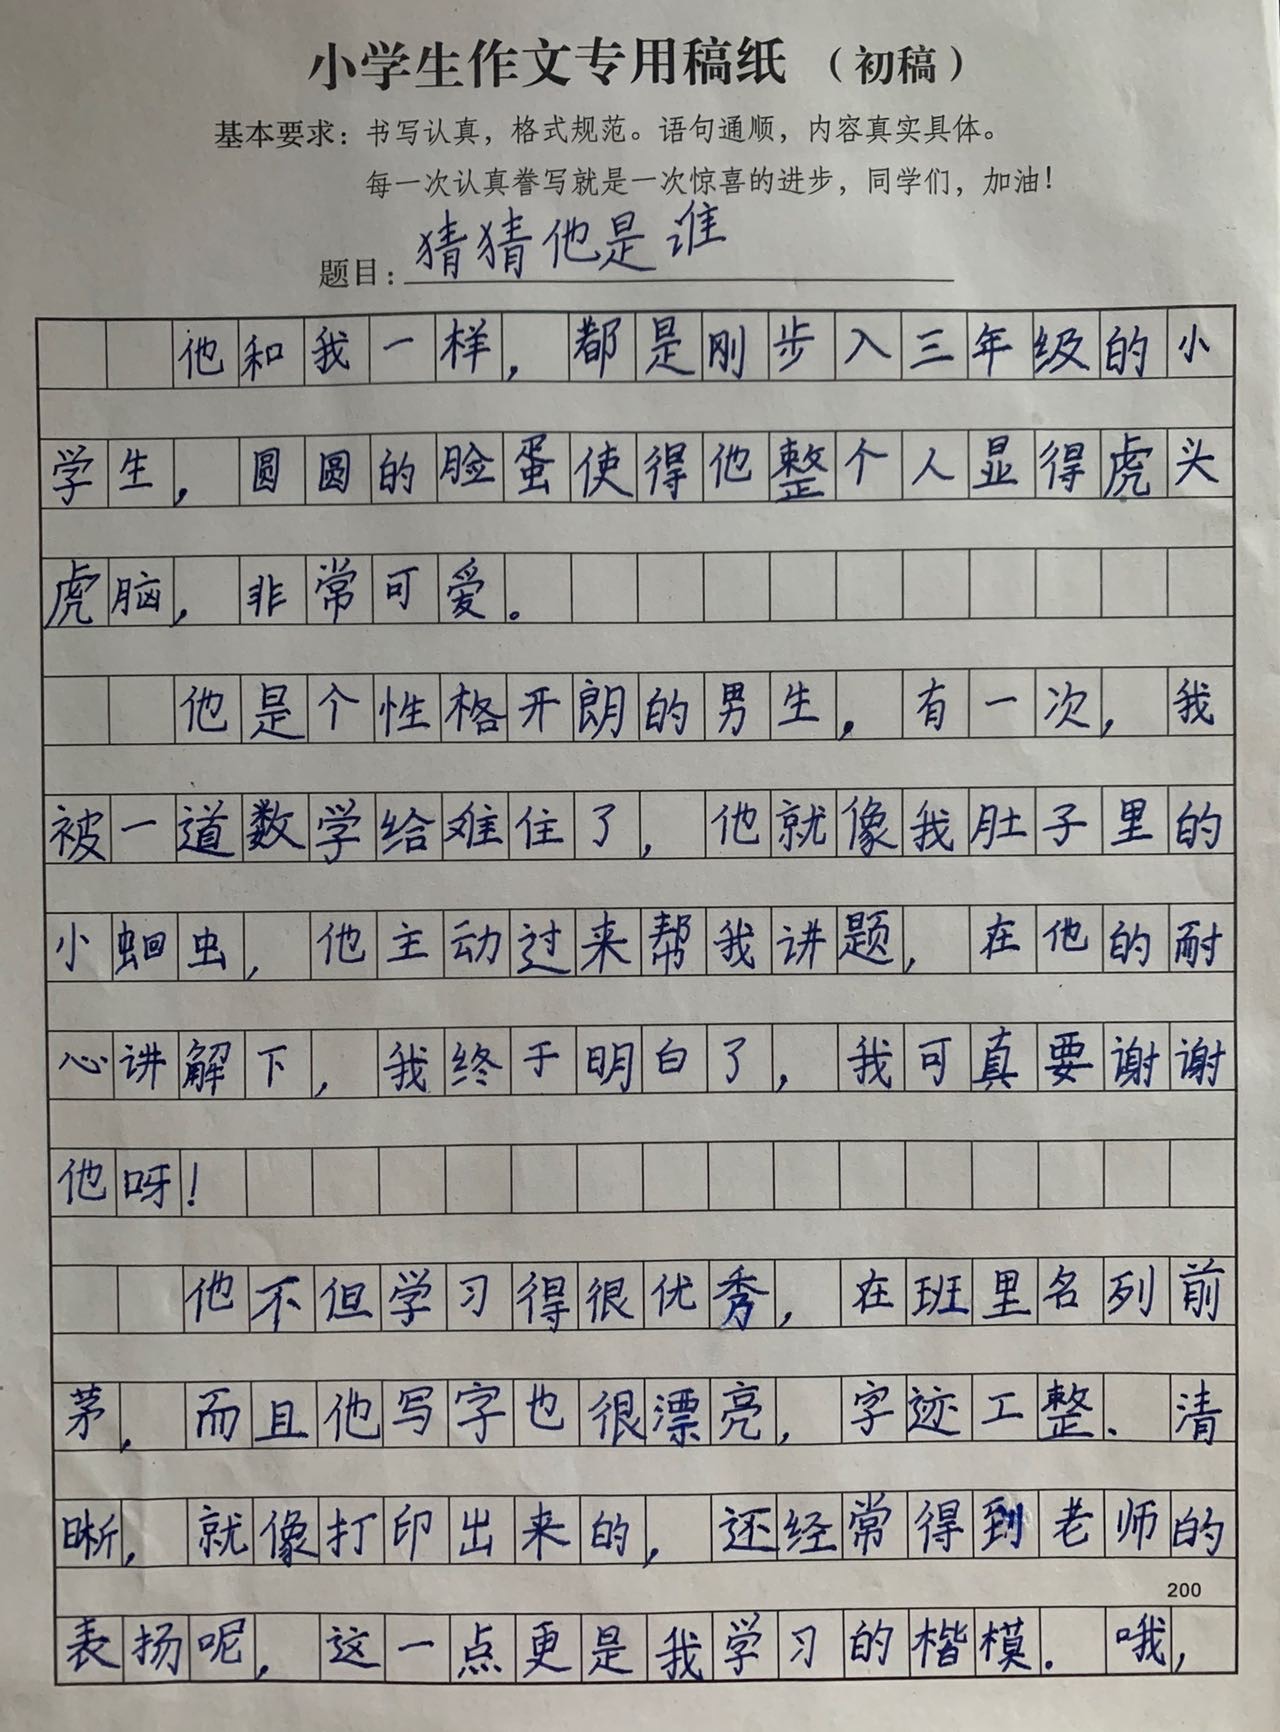 小学生作文专用稿纸（初稿）
基本要求：书写认真，格式规范。语句通顺，内容真实具体。
每一次认真誊写就是一次惊喜的进步，同学们，加油！
题目：猜猜他是谁
他和我一样，都是刚步入三年级的小
学生，圆圆的脸蛋使得他整个人显得虎头
虎脑，非常可爱。
他是个性格开朗的男生。有一次，我
被一道数学给难住了，他就像我肚子里的
小蛔虫，他主动过来帮我讲题，在他的耐
心讲解下，我终于明白了，我可真要谢谢
他呀！
他不但学习得很优秀，在班里名列前
茅，而且他写字也很漂亮，字迹工整、清
晰，就像打印出来的，还经常得到老师的
200
表扬呢，这一点更是我学习的楷模。哦，